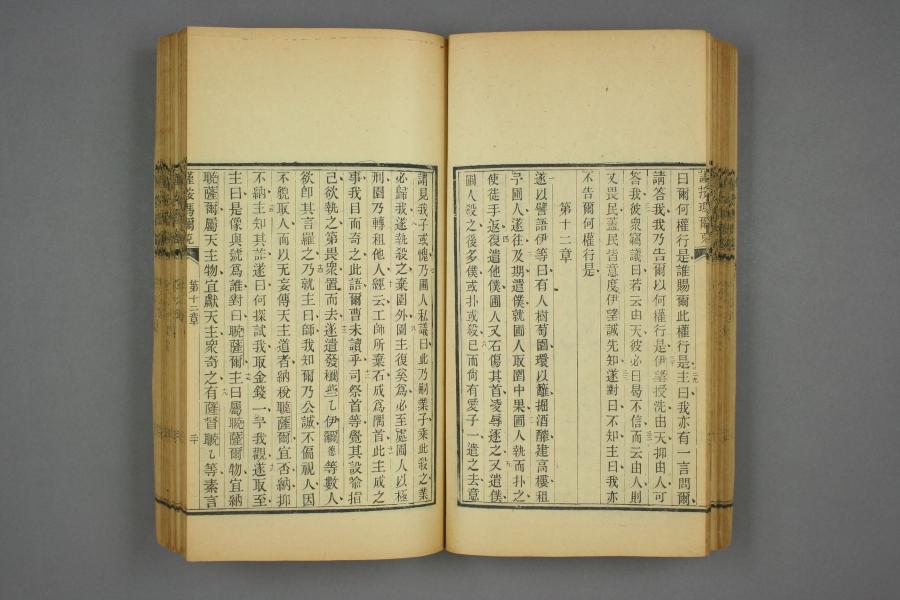 曰爾何權行是誰賜爾此權行是主曰我亦有一言問爾
請答我我乃告爾以何權行是伊望授洗由天抑由人可
答我彼衆竊議曰若云由天彼必曰曷不信而云由人則
又畏民蓋民皆意度伊望誠先知遂對曰不知主曰我亦
不告爾何權行是
第十二章
遂以譬語伊等曰有人樹萄園環以籬掘酒醡建高樓租
予圃人遂往及期遣僕就圃人取園中果圃人執而扑之
使徒手返復遣他僕圃人又石傷其首凌辱逐之又遣僕
圃人殺之後多僕或扑或殺已而尙有愛子一遣之去意
請見我子或愧乃圃人私議曰此乃嗣業子乘此殺之業
必歸我遂執殺之棄園外園主復奚爲必至處圃人以極
刑園乃轉租他人經云工師所棄石成爲隅首此主成之
事我目而奇之此語爾曹未讀乎司祭首等覺其設喩指
己欲執之第畏衆置而去遂遣發穪些乙伊爾等數人
欲卽其言羅之乃就主曰師我知爾乃公誠不偏視人因
不貌取人而以无妄傳天主道者納稅聀薩爾宜否納抑
不納主知其詐遂曰何探試我取金錢一予我觀遂取至
主曰是像與號爲誰對曰聀薩爾主曰屬聀薩爾物宜納
聀薩爾屬天主物宜獻天主衆奇之有薩督聀乙等素言
謹按馬爾克
第十二章
二十